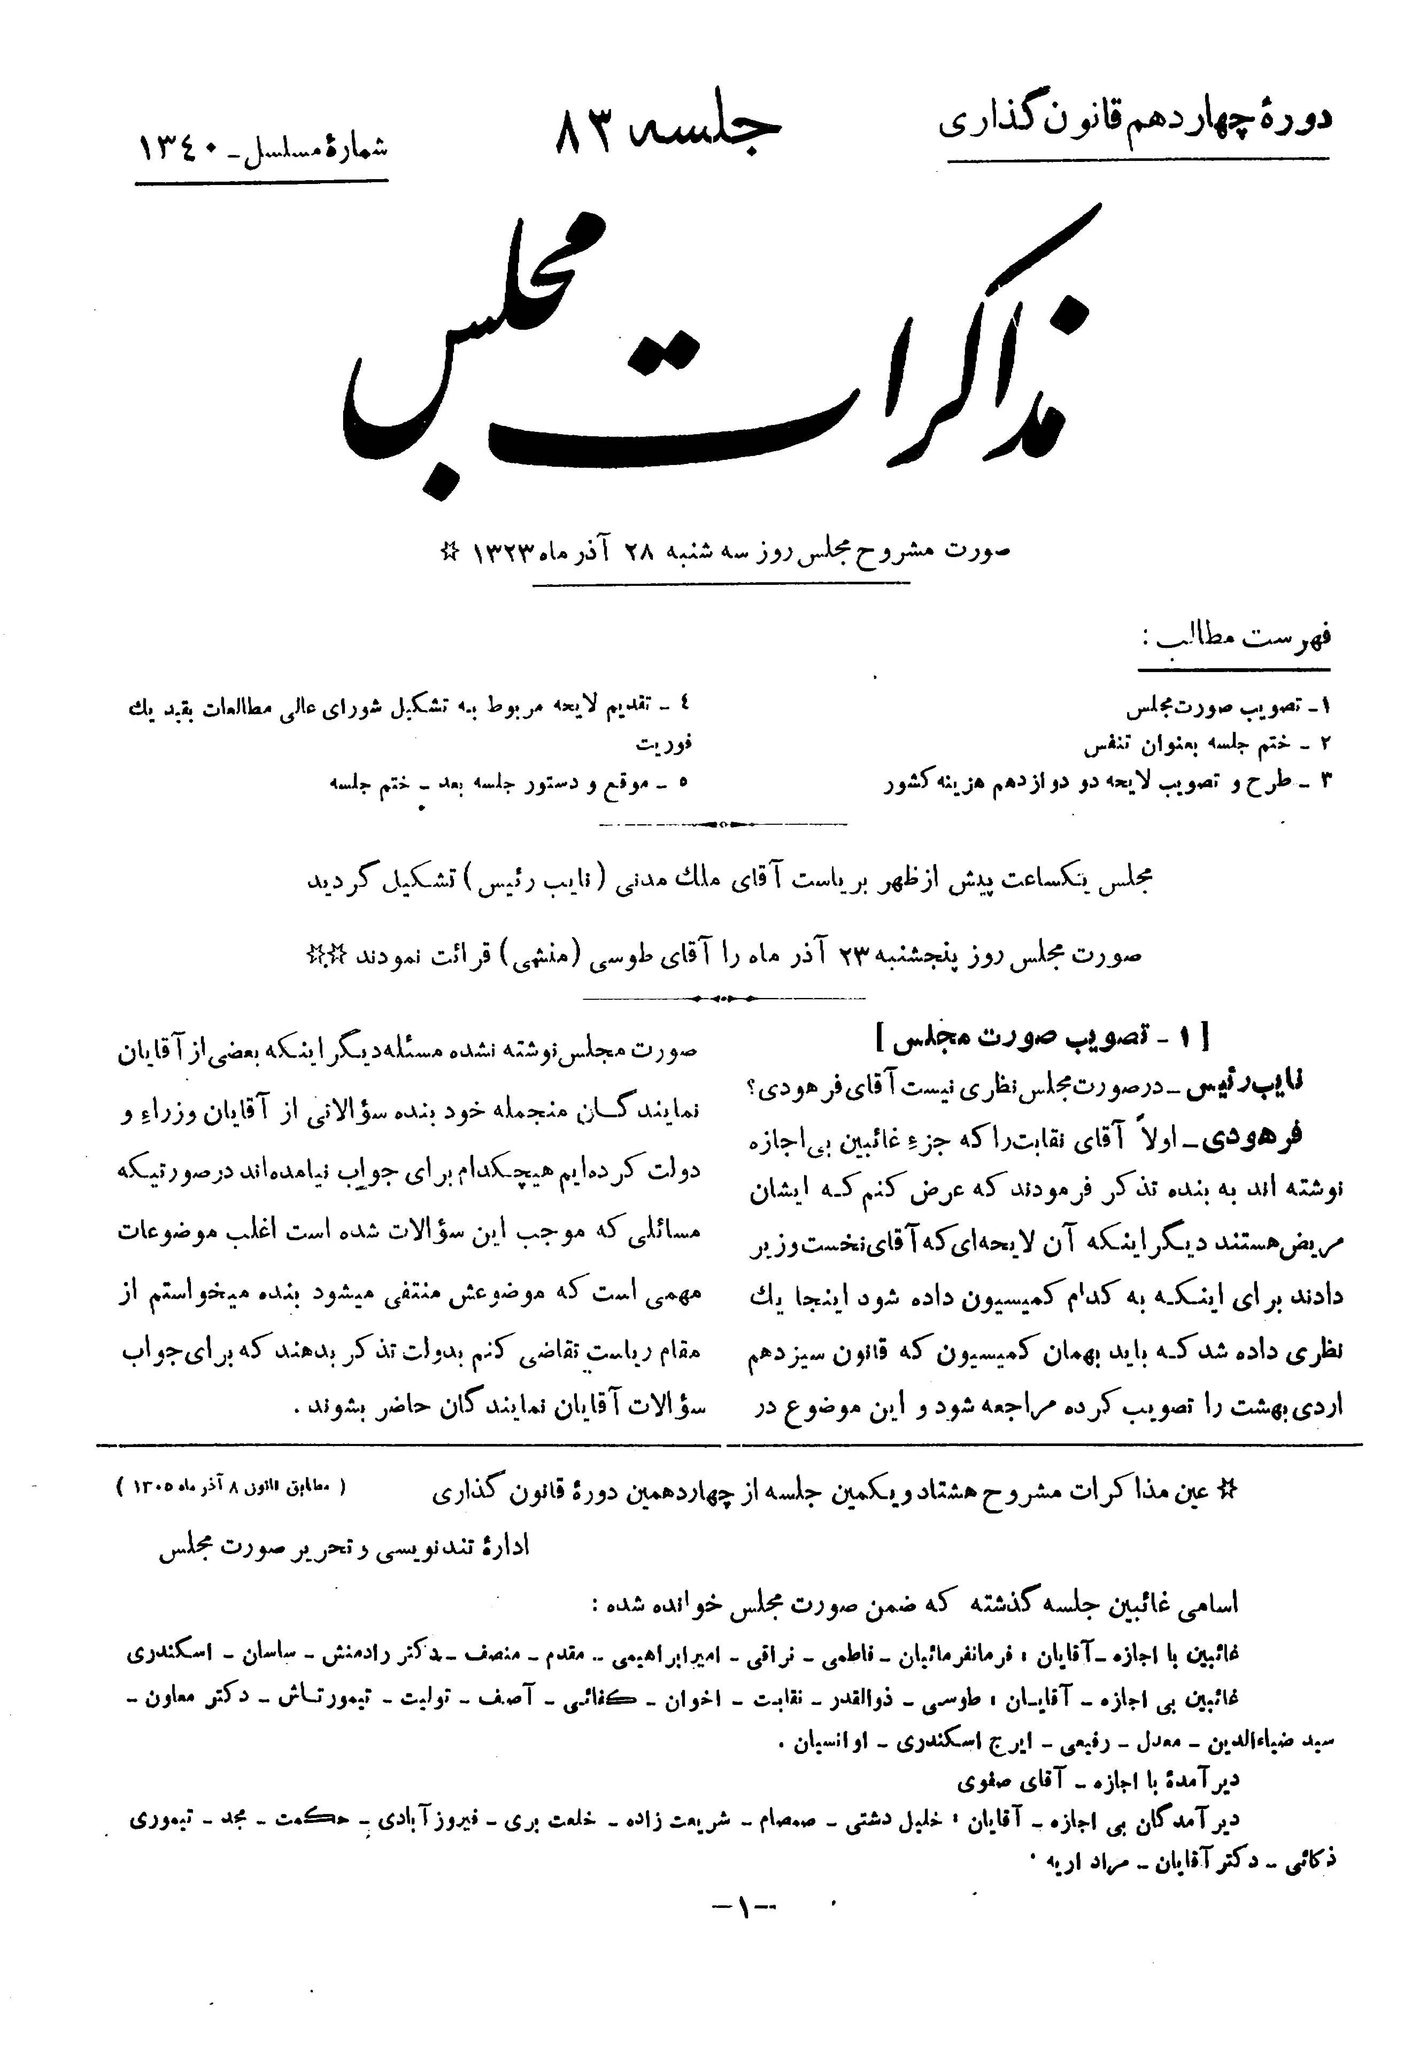 دورهٔ چهاردهم قانون گذاری
جلسه ۸۳
شمارهٔ مسلسل ـ ۱۳۴۰
مذاکرات مجلس
صورت مشروح مجلس روز سه شنبه ۲۸ آذر ماه ۱۳۲۳ ☆
فهرست مطالب :
۱ـ تصویب صورت مجلس
۲ ـ ختم جلسه بعنوان تنفس
۳ ـ طرح و تصویب لایحه دو دوازدهم هزینه کشور
٤ ـ تقدیم لایحه مربوط به تشکیل شورای عالی مطالعات بقید یك
فوریت
۵ ـ موقع و دستور جلسه بعد ـ ختم جلسه
مجلس یکساعت پیش از ظهر بریاست آقای ملك مدنی (نایب رئیس) تشکیل گردید
صورت مجلس روز پنجشنبه ۲۳ آذر ماه را آقای طوسی (منشی) قرائت نمودند ☆☆
[ ۱ ـ تصویب صورت مجلس ]
نایب رئیس ـ در صورت مجلس نظری نیست آقای فرهودی؟
فرهودی ـ اولاً آقای نقابت را که جزء غائبین بی اجازه
نوشته اند به بنده تذکر فرمودند که عرض کنم که ایشان
مریض هستند دیگر اینکه آن لایحه‌ای که آقای نخست وزیر
دادند برای اینکه به کدام کمیسیون داده شود اینجا یك
نظری داده شد که باید بهمان کمیسیون که قانون سیزدهم
اردی بهشت را تصویب کرده مراجعه شود و این موضوع در
صورت مجلس نوشته نشده مسئله دیگر اینکه بعضی از آقایان
نمایندگان منجمله خود بنده سؤالاتی از آقایان وزراء و
دولت کرده‌ایم هیچکدام برای جواب نیامده‌اند در صورتیکه
مسائلی که موجب این سؤالات شده است اغلب موضوعات
مهمی است که موضوعش منتفی میشود بنده میخواستم از
مقام ریاست تقاضی کنم بدولت تذکر بدهند که برای جواب
سؤالات آقایان نمایندگان حاضر بشوند .
☆ عین مذاکرات مشروح هشتاد و یکمین جلسه از چهاردهمین دورهٔ قانون گذاری
( مطابق قانون ۸ آذر ماه ۱۳۰۵ )
ادارهٔ تندنویسی و تحریر صورت مجلس
اسامی غائبین جلسه گذشته که ضمن صورت مجلس خوانده شده :
غائبین با اجازه ـ آقایان : فرمانفرمائیان ـ فاطمی ـ نراقی ـ امیرابراهیمی ـ مقدم ـ منصف ـ دکتر رادمنش ـ ساسان ـ اسکندری
غائبین بی اجازه ـ آقایان : طوسی ـ ذوالقدر ـ نقابت ـ اخوان ـ کفائی ـ آصف ـ تولیت ـ تیمورتاش ـ دکتر معاون ـ
سید ضیاءالدین ـ معدل ـ رفیعی ـ ایرج اسکندری ـ اوانسیان .
دیر آمدهٔ با اجازه ـ آقای صفوی
دیر آمدگان بی اجازه ـ آقایان : خلیل دشتی ـ صمصام ـ شریعت زاده ـ خلعت بری ـ فیروزآبادی ـ حکمت ـ مجد ـ تیموری
ذکائی ـ دکتر آقایان ـ مراد اریه .
ـ۱ـ